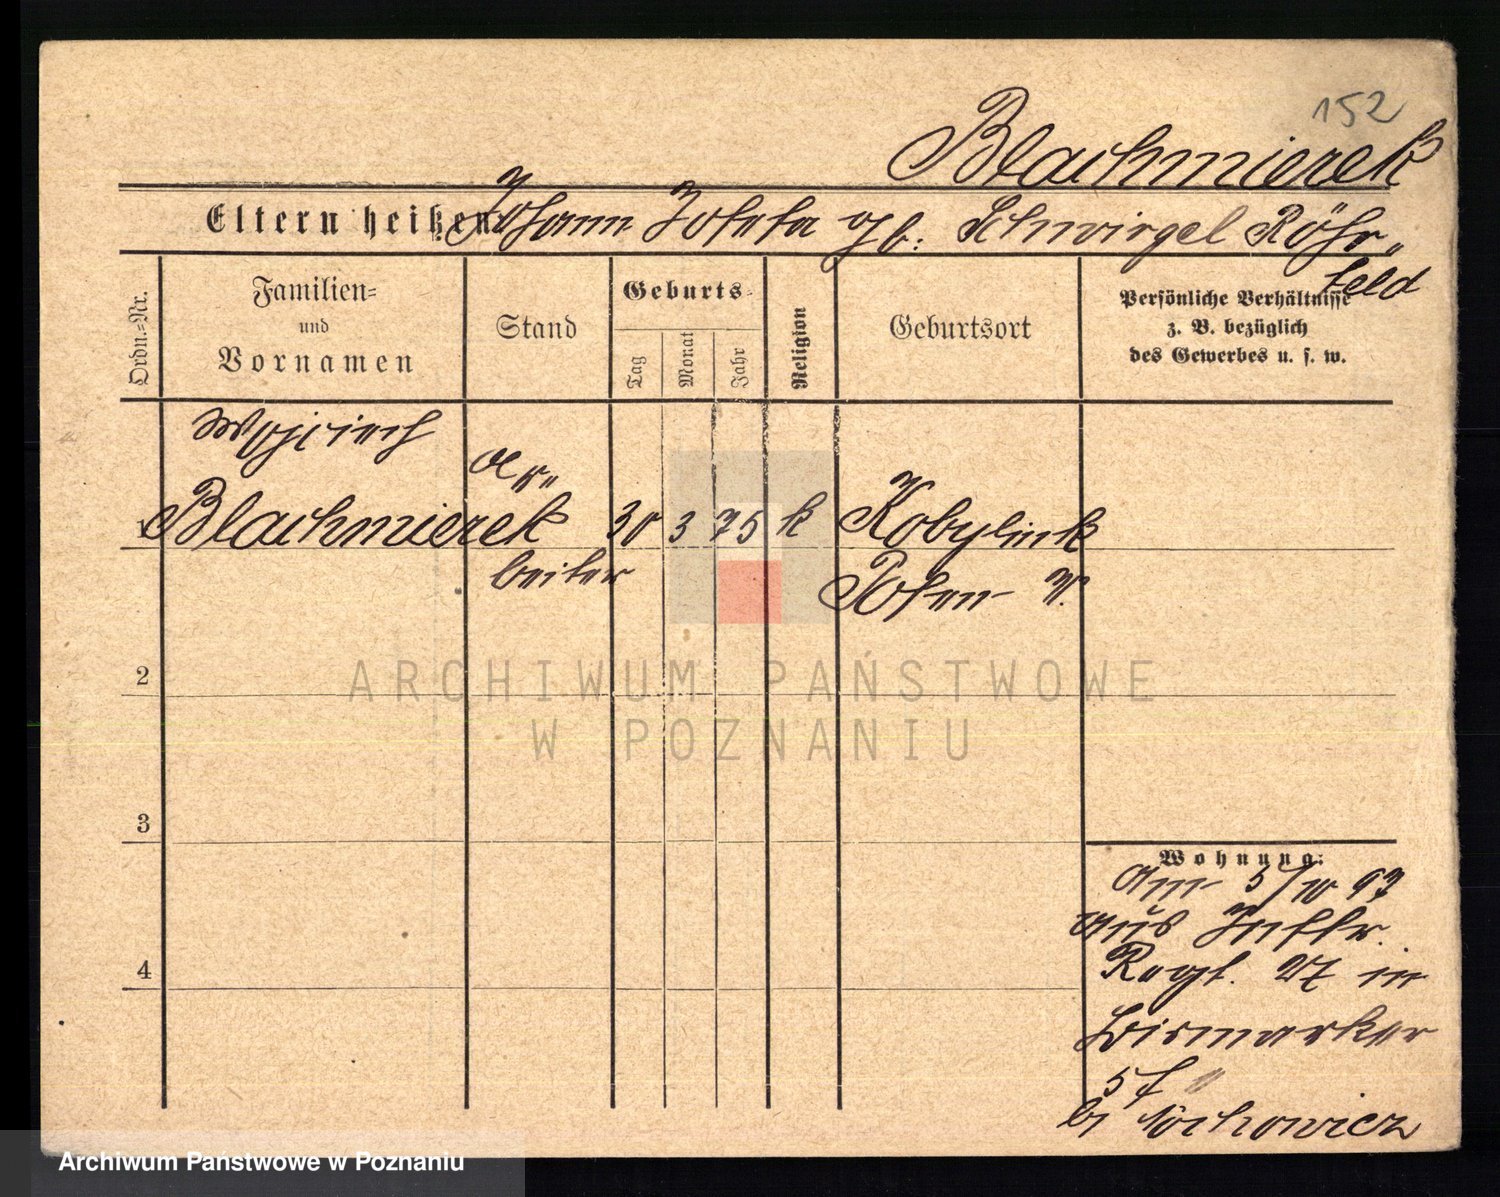 152
Blachmierek
Eltern heißen Johann Josefa gb. Schwirgel Röhr„
feld
Ordn.=Nr.
Familien=
und
Vornamen
Stand
Geburts=
Tag
Monat
Jahr
Religion
Geburtsort
Persönliche Verhältnisse
z. B. bezüglich
des Gewerbes u. s. w.
Wojciech
Ar„
1 Blachmierek 30 3 75 k Kobylink
beiter Posen W.
2
3
4
Wohnung:
Am 5/10 97
aus Inftr.
Regt. 27 in
Bismarker
5 f
b/
ARCHIWUM PAŃSTWOWE
W POZNANIU
Archiwum Państwowe w Poznaniu